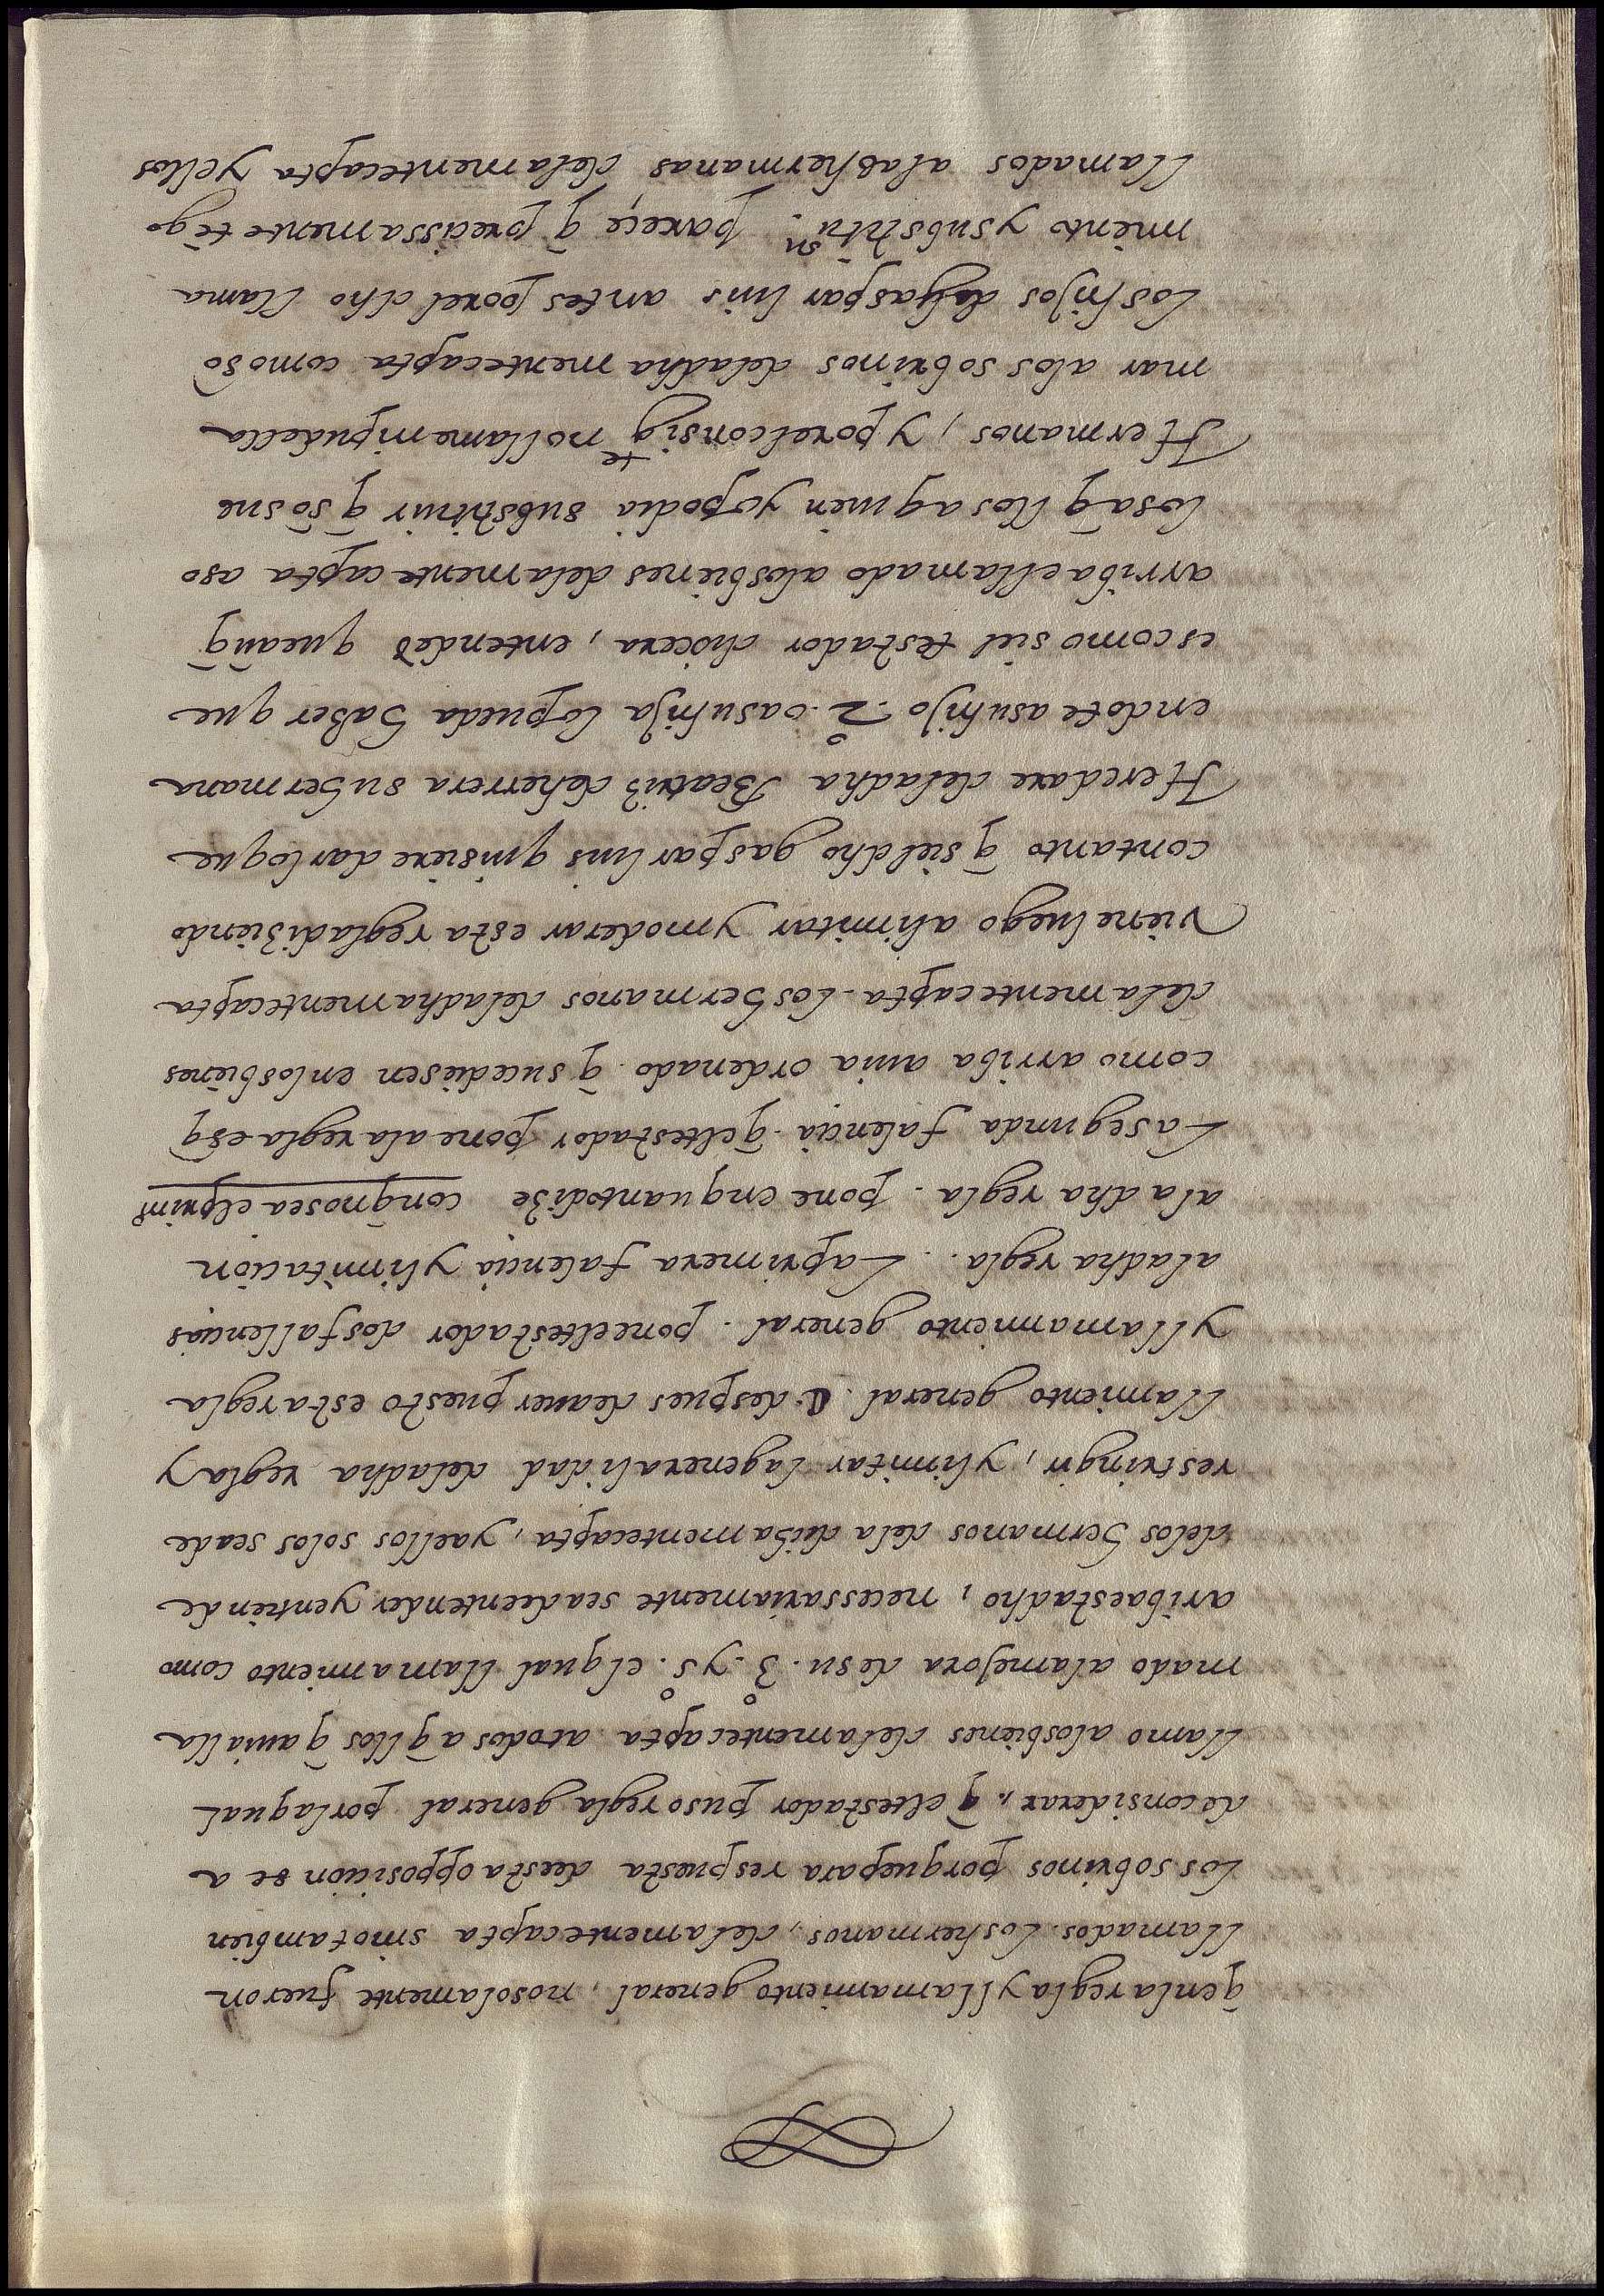 q̃ enla regla y llamamiento general, no solamente fueron
llamados. los hermanos, dela mentecapta sino tambien
los sobrinos porque para respuesta de esta opposicion se a
de considerar, q̃ el testador puso regla general por la qual
llamo alos bienes dela mentecapta atodos aq̃llos q̃ auia lla
mado ala mejora de su. 3º. y 5º. el qual llamamiento como
aribaestadho, necessariamente sea de entender y entiende
delos hermanos dela dicha mentecapta, y aellos solos seade
restringir, y limitar la generalidad deladha regla y
llamiento general. despues de auer puesto esta regla
y llamamiento general. pone el testador dos fallencias
aladha regla. La primera falencia y limitacion
ala dha regla. pone en quanto dize con q̃ no sea el primº
La segunda falencia q̃ el testador pone ala regla es q̃
como arriba auia ordenado q̃ sucediesen en los bienes
dela mentecapta. los hermanos deladha mentecapta
viene luego alimitar y moderar esta regla diziendo
con tanto q̃ si el dho gaspar luis quisiere dar lo que
Heredare deladha Beatriz de herrera su hermana
en dote a su hijo 2º. o a su hija lo pueda haber que
es como si el testador dixera, entended que aunq̃
arriba e llamado alos bienes dela mentecapta a so
los aq̃llos a quien yo podia substituir q̃ sō sus
Hermanos, y por el consigte no llame ni pude lla
mar alos sobrinos deladha mentecapta como sō
los hijos de gaspar luis antes por el dho llama
miento y substituōn. pareçe q̃ precissamente tēgo
llamados alas hermanas dela mentecapta y ellos